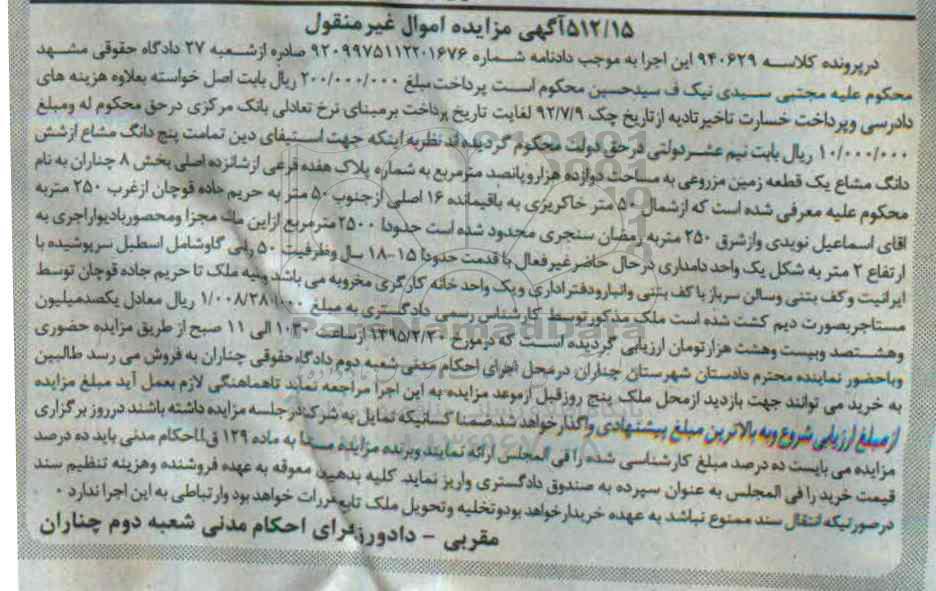 ۵۱۲/۱۵آگهی مزایده اموال غیرمنقول
درپرونده کلاسه ۹۴۰۶۲۹ این اجرا به موجب دادنامه شماره ۹۲۰۹۹۷۵۱۱۲۲۰۱۶۷۶ صادره ازشعبه ۲۷ دادگاه حقوقی مشهد
محکوم علیه مجتبی سیدی نیک ف سیدحسین محکوم است پرداخت مبلغ ۲۰۰/۰۰۰/۰۰۰ ریال بابت اصل خواسته بعلاوه هزینه های
دادرسی وپرداخت خسارت تاخیرتادیه ازتاریخ چک ۹۲/۷/۹ لغایت تاریخ پرداخت برمبنای نرخ تعادلی بانک مرکزی درحق محکوم له ومبلغ
۱۰/۰۰۰/۰۰۰ ریال بابت نیم عشردولتی درحق دولت محکوم گردیده اند نظربه اینکه جهت استیفای دین تمامت پنج دانگ مشاع ازشش
دانگ مشاع یک قطعه زمین مزروعی به مساحت دوازده هزاروپانصد مترمربع به شماره پلاک هفده فرعی ازشانزده اصلی بخش ۸ چناران به نام
محکوم علیه معرفی شده است که ازشمال ۵۰ متر خاکریزی به باقیمانده ۱۶ اصلی ازجنوب ۵۰ متر به حریم جاده قوچان ازغرب ۲۵۰ متربه
اقای اسماعیل نویدی وازشرق ۲۵۰ متربه رمضان سنجری محدود شده است حدودا ۲۵۰۰ مترمربع ازاین ملک مجزا ومحصوربادیواراجری به
ارتفاع ۲ متر به شکل یک واحد دامداری درحال حاضرغیرفعال با قدمت حدودا ۱۵-۱۸ سال وظرفیت ۵۰ راس گاوشامل اسطبل سرپوشیده با
ایرانیت وکف بتنی وسالن سرباز با کف بتنی وانبارودفتراداری ویک واحد خانه کارگری مخروبه می باشد وبقیه ملک تا حریم جاده قوچان توسط
مستاجربصورت دیم کشت شده است ملک مذکورتوسط کارشناس رسمی دادگستری به مبلغ ۱/۰۰۸/۲۸۰/۰۰۰ ریال معادل یکصدمیلیون
وهشتصد وبیست وهشت هزارتومان ارزیابی گردیده است که درمورخ ۱۳۹۵/۲/۲۰ ازساعت ۱۰:۳۰ الی ۱۱ صبح از طریق مزایده حضوری
وباحضور نماینده محترم دادستان شهرستان چناران درمحل اجرای احکام مدنی شعبه دوم دادگاه حقوقی چناران به فروش می رسد طالبین
به خرید می توانند جهت بازدید ازمحل ملک پنج روزقبل ازموعد مزایده به این اجرا مراجعه نمایند تاهماهنگی لازم بعمل آید مبلغ مزایده
ازمبلغ ارزیابی شروع وبه بالاترین مبلغ پیشنهادی واگذارخواهد شد ضمنا کسانیکه تمایل به شرکت درجلسه مزایده داشته باشند درروز برگزاری
مزایده می بایست ده درصد مبلغ کارشناسی شده را فی المجلس ارائه نمایند وبرنده مزایده مستندا به ماده ۱۲۹ ق.ا.احکام مدنی باید ده درصد
قیمت خرید را فی المجلس به عنوان سپرده به صندوق دادگستری واریز نماید. کلیه بدهی معوقه به عهده فروشنده وهزینه تنظیم سند
درصورتیکه انتقال سند ممنوع نباشد به عهده خریدارخواهد بودوتخلیه وتحویل ملک تابع مقررات خواهد بود وارتباطی به این اجرا ندارد ۰
مقربی - دادورز اجرای احکام مدنی شعبه دوم چناران
ParsNamadData